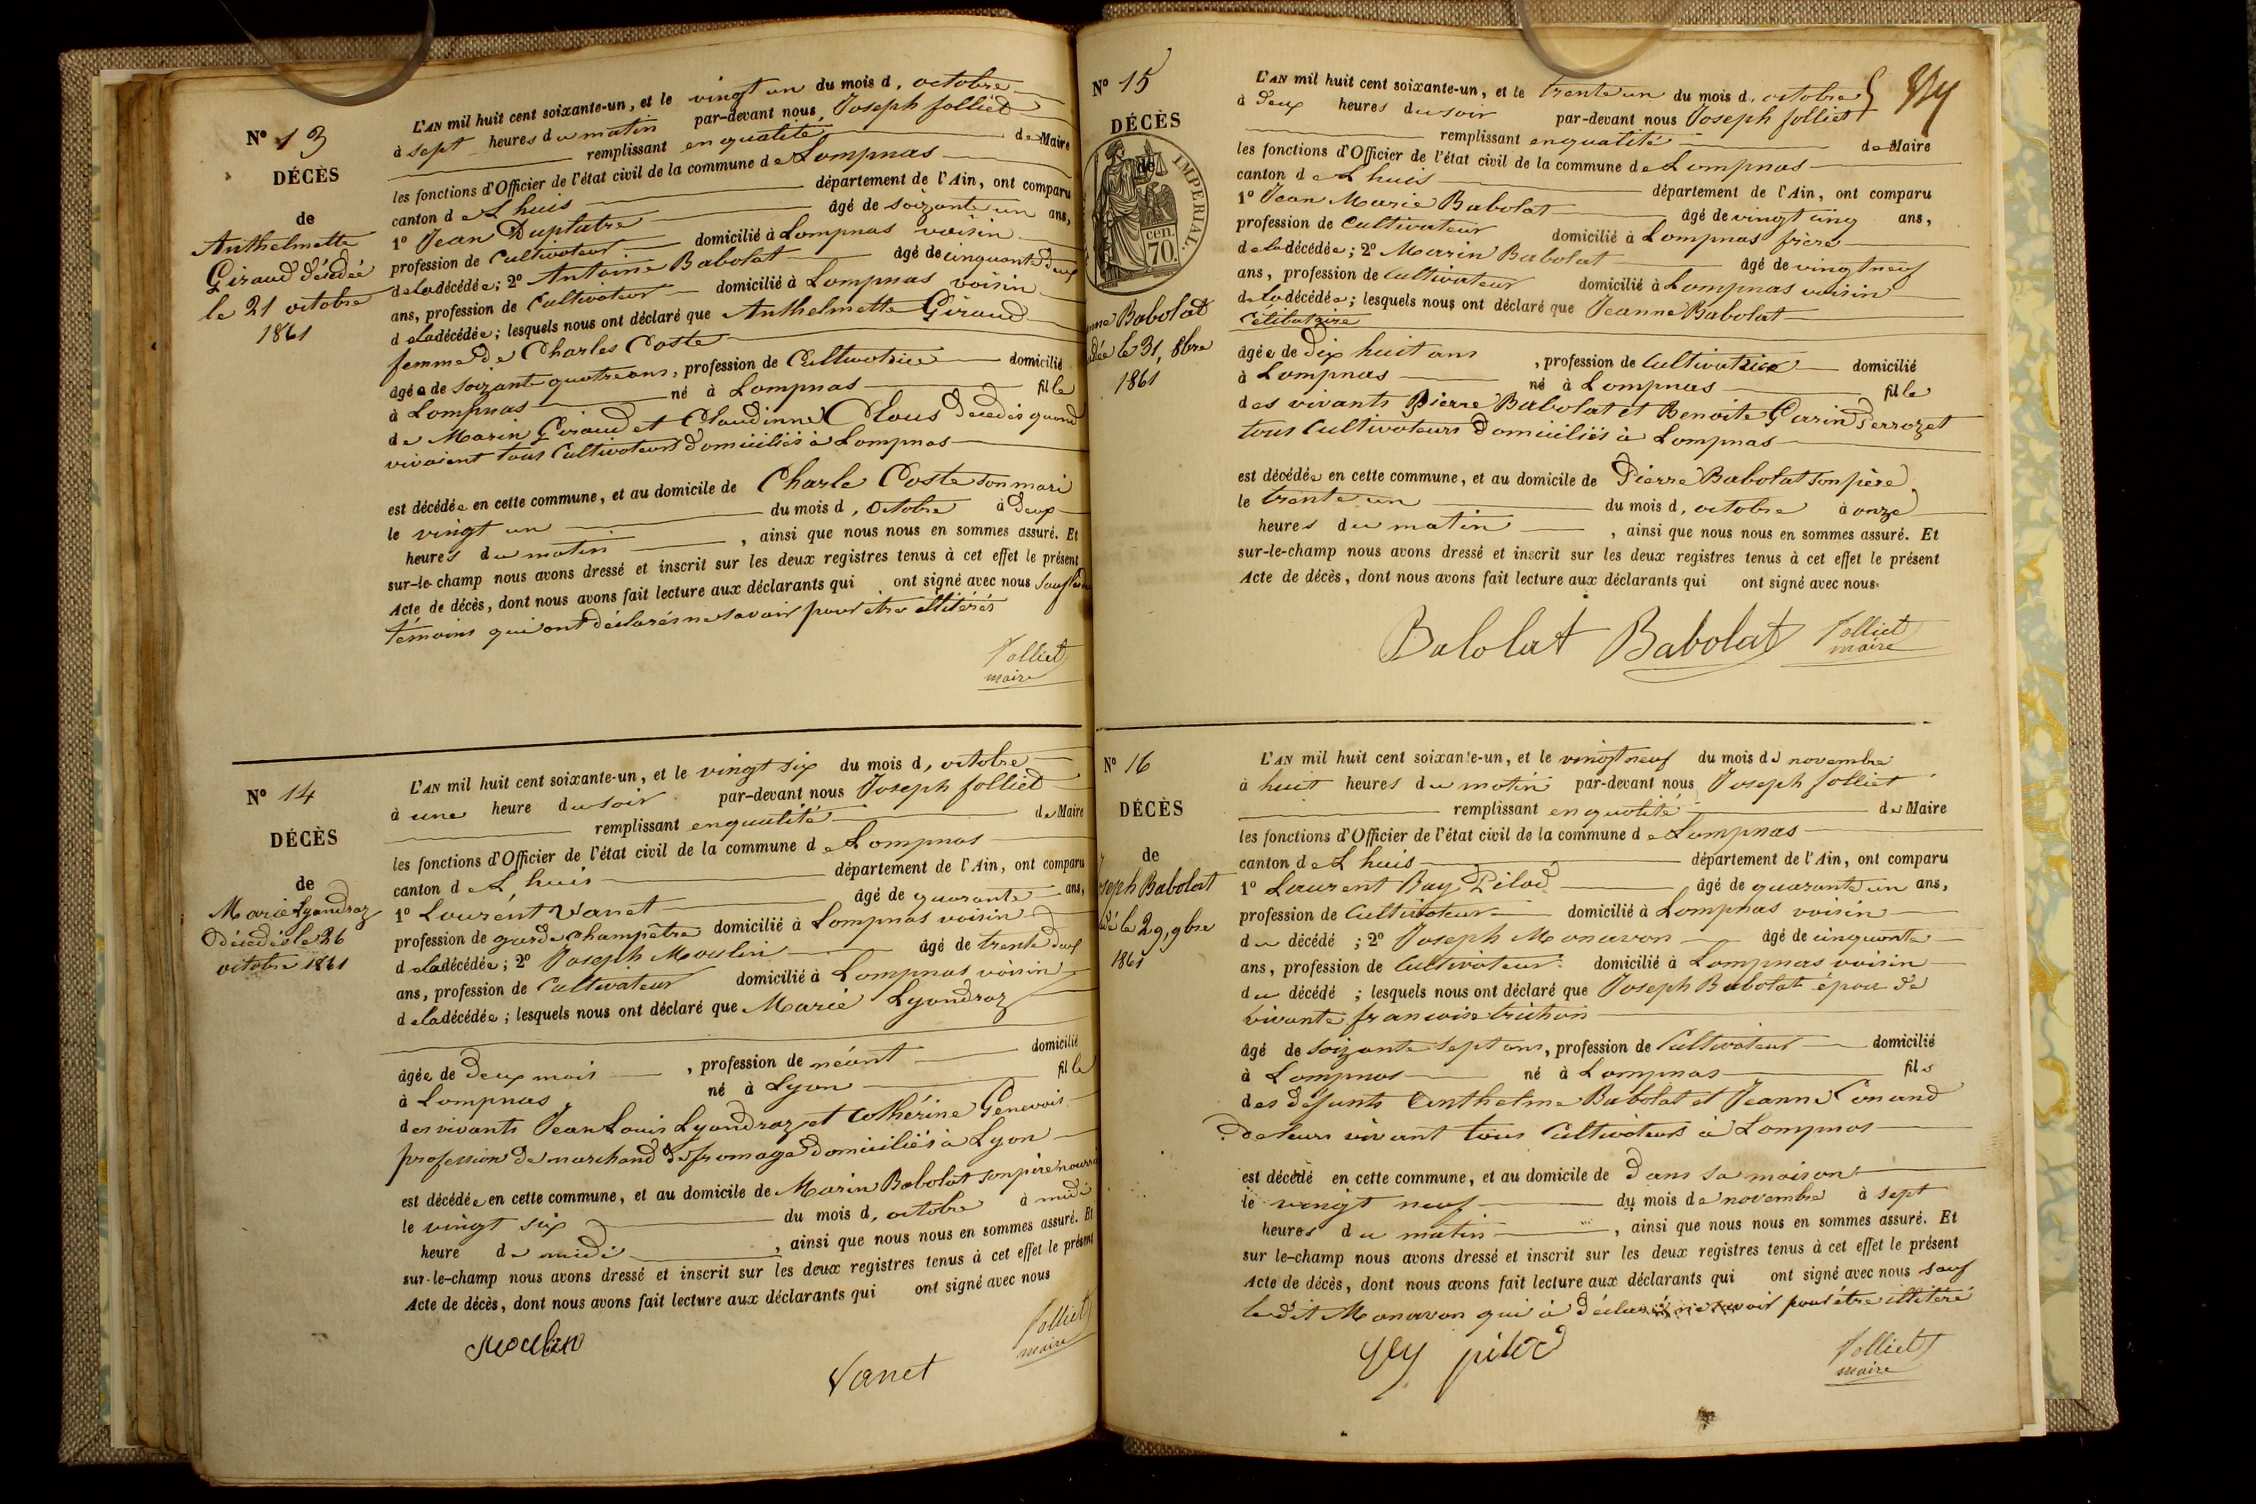 N° 13
DÉCÈS
de
Anthelmette
Giraud décédée
le 21 octobre
1861
L'AN mil huit cent soixante-un, et le vingt un du mois d, octobre
à sept heures du matin par-devant nous, Joseph Jolliet
remplissant en qualité de Maire
les fonctions d'Officier de l'état civil de la commune de Lompnas
canton de Lhuis département de l'Ain, ont comparu
1° Jean Duplatre âgé de soixante un ans,
profession de Cultivateur domicilié à Lompnas voisin
de la décédée; 2° Antoine Babolat âgé de cinquante deux
ans, profession de Cultivateur domicilié à Lompnas voisin
de la décédée; lesquels nous ont déclaré que Anthelmette Giraud
femme de Charles Coste
âgée de soixante quatre ans, profession de Cultivatrice domicilié
à Lompnas né à Lompnas fille
de Marin Giraud et Claudinne Clous décédés quand
vivaient tous Cultivateurs domiciliés à Lompnas
est décédée en cette commune, et au domicile de Charle Coste son mari
le vingt un du mois d, octobre à deux
heures du matin, ainsi que nous nous en sommes assuré. Et
sur-le-champ nous avons dressé et inscrit sur les deux registres tenus à cet effet le présent
Acte de décès, dont nous avons fait lecture aux déclarants qui ont signé avec nous sauf les
témoins qui ont déclarés ne savoir pour être illitérés
Jolliet
maire
N° 14
DÉCÈS
de
Marie Lyandraz
Décédés le 26
octobre 1861
L'AN mil huit cent soixante-un, et le vingt six du mois d, octobre
à une heure du soir par-devant nous Joseph Jolliet
remplissant en qualité de Maire
les fonctions d'Officier de l'état civil de la commune de Lompnas
canton de Lhuis département de l'Ain, ont comparu
1° Laurént Vanet âgé de quarante ans,
profession de garde champêtre domicilié à Lompnas voisin
de la décédée; 2° Joseph Moulin âgé de trente deux
ans, profession de Cultivateur domicilié à Lompnas voisin
de la décédée; lesquels nous ont déclaré que Marie Lyandraz
âgée de deux mois, profession de néant domicilié
à Lompnas né à Lyon fille
des vivants Jean Louis Lyandraz et Cathérine Genevois
profession de marchand de fromage domiciliés à Lyon
est décédée en cette commune, et au domicile de Marin Babolat son père nourri
le vingt six du mois d, octobre à midi
heure de midi, ainsi que nous nous en sommes assuré. Et
sur-le-champ nous avons dressé et inscrit sur les deux registres tenus à cet effet le présent
Acte de décès, dont nous avons fait lecture aux déclarants qui ont signé avec nous
Moulin
Vanet
Jolliet
maire
N° 15
DÉCÈS
de
IMPÉRIAL.
70 cen.
Babolat
le 31, 8bre
1861
L'AN mil huit cent soixante-un, et le trente un du mois d, octobre
à deux heures du soir par-devant nous Joseph Jolliet
remplissant en qualité de Maire
les fonctions d'Officier de l'état civil de la commune de Lompnas
canton de Lhuis département de l'Ain, ont comparu
1° Jean Marie Babolat âgé de vingt cinq ans,
profession de Cultivateur domicilié à Lompnas frère
de la décédée; 2° Marin Babolat âgé de vingt neuf
ans, profession de Cultivateur domicilié à Lompnas voisin
de la décédée; lesquels nous ont déclaré que Jeanne Babolat
Célibataire
âgée de dix huit ans, profession de Cultivatrice domicilié
à Lompnas né à Lompnas fille
des vivants Pierre Babolat et Benoite Garin Perrozet
tous Cultivateurs domiciliés à Lompnas
est décédée en cette commune, et au domicile de Pierre Babolat son père
le trente un du mois d, octobre à onze
heures du matin, ainsi que nous nous en sommes assuré. Et
sur-le-champ nous avons dressé et inscrit sur les deux registres tenus à cet effet le présent
Acte de décès, dont nous avons fait lecture aux déclarants qui ont signé avec nous.
Babolat Babolat Jolliet
maire
N° 16
DÉCÈS
de
Babolat
le 29, 9bre
1861
L'AN mil huit cent soixante-un, et le vingt neuf du mois de novembre
à huit heures du matin par-devant nous Joseph Jolliet
remplissant en qualité de Maire
les fonctions d'Officier de l'état civil de la commune de Lompnas
canton de Lhuis département de l'Ain, ont comparu
1° Laurent Bay Pilod âgé de quarante un ans,
profession de Cultivateur domicilié à Lompnas voisin
du décédé; 2° Joseph Monavon âgé de cinquante
ans, profession de Cultivateur domicilié à Lompnas voisin
du décédé; lesquels nous ont déclaré que Joseph Babolat époux de
vivante francoise trichon
âgé de soixante sept ans, profession de Cultivateur domicilié
à Lompnas né à Lompnas fils
des défunts Anthelme Babolat et Jeanne Conand
de leurs vivant tous Cultivateurs à Lompnas
est décédé en cette commune, et au domicile de dans sa maison
le vingt neuf du mois de novembre à sept
heures du matin, ainsi que nous nous en sommes assuré. Et
sur le-champ nous avons dressé et inscrit sur les deux registres tenus à cet effet le présent
Acte de décès, dont nous avons fait lecture aux déclarants qui ont signé avec nous sauf
le dit Monavon qui à déclaré ne savoir pour être illitéré
pilod
Jolliet
maire